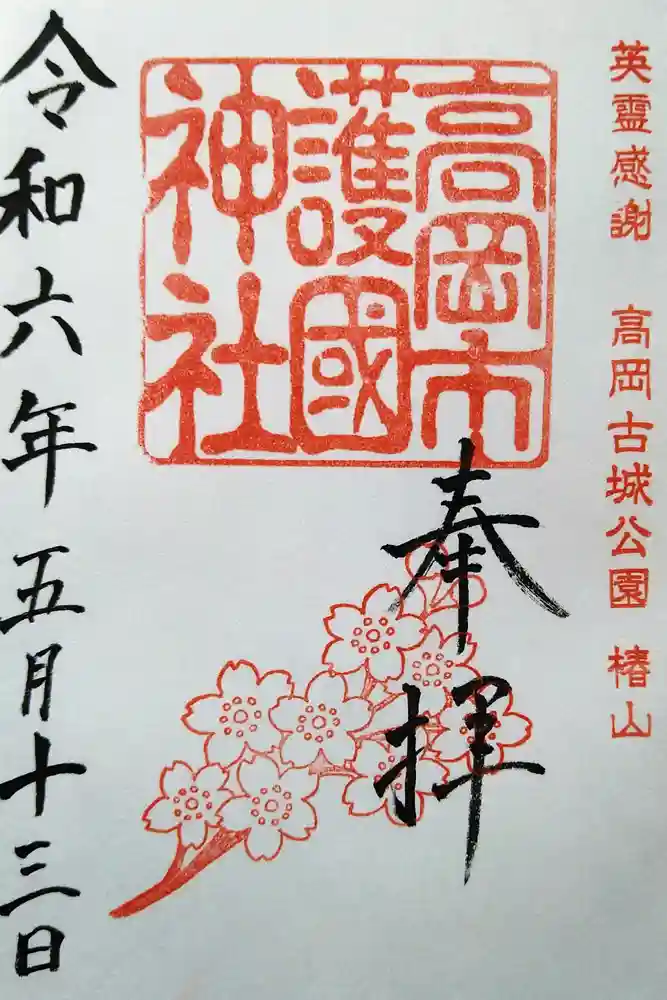 英霊感謝 高岡古城公園 椿山
高岡市
護國
神社
奉拝
令和六年五月十三日